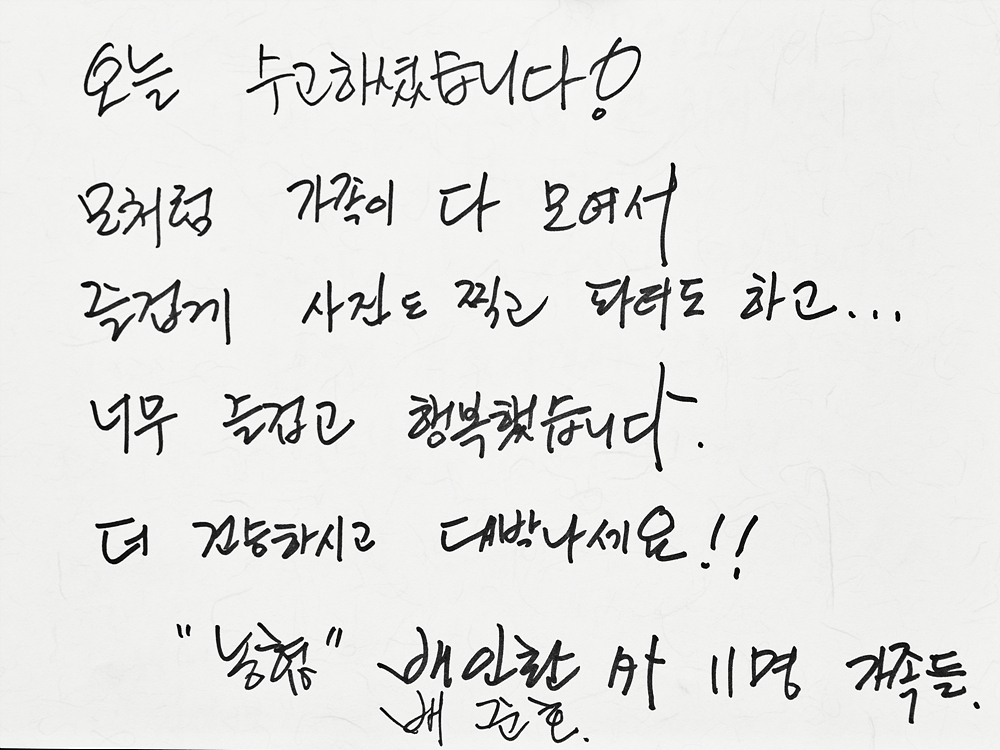 오늘 수고하셨습니다!
모처럼 가족이 다 모여서
즐겁게 사진도 찍고 파티도 하고...
너무 즐겁고 행복했습니다.
더 건승하시고 대박나세요!!
"농협" 배인환 外 11명 가족들.
배